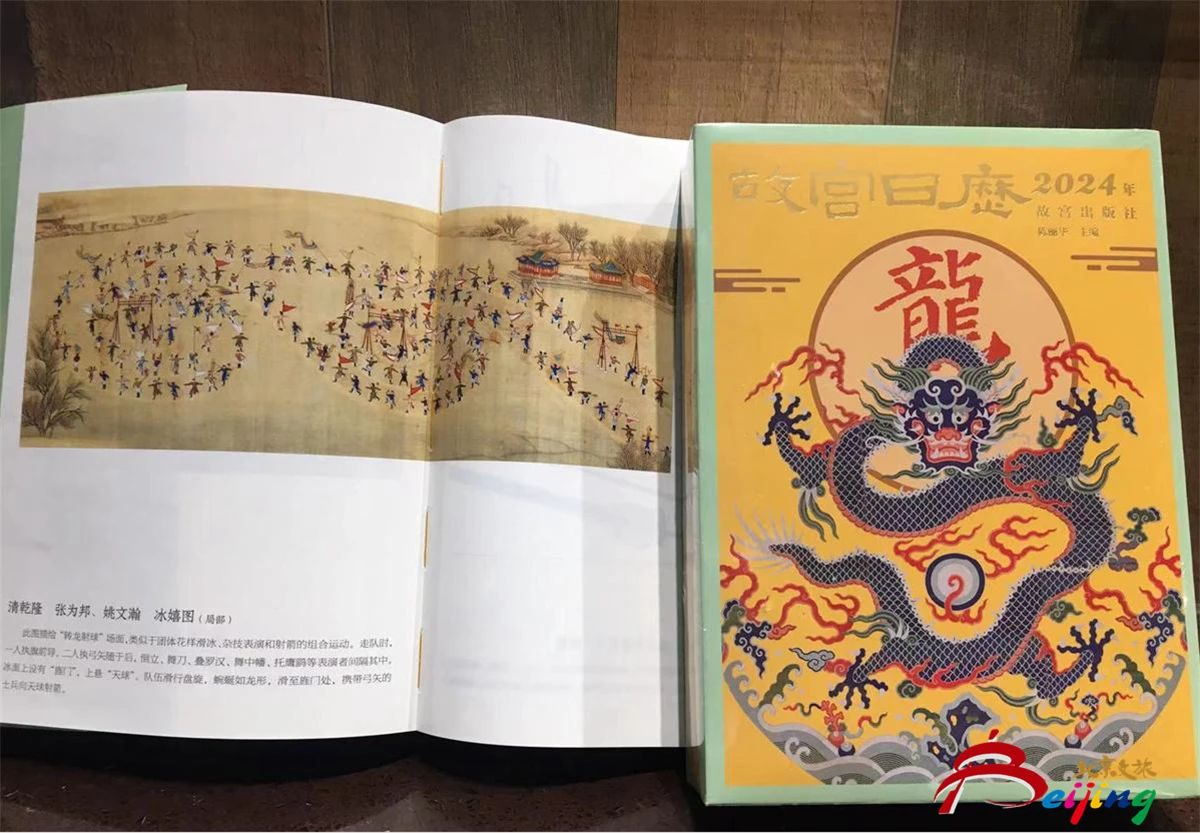 清乾隆　张为邦、姚文瀚　冰嬉图（局部）
此图描绘“转龙射球”场面，类似于团体花样滑冰、杂技表演和射箭的组合运动。走队时，
一人执旗前导，二人执弓矢随于后，倒立、舞刀、叠罗汉、舞中幡、托鹰鹞等表演者间隔其中。
冰面上设有“旌门”，上悬“天球”。队伍滑行盘旋，蜿蜒如龙形，滑至旌门处，携带弓矢的
士兵向天球射箭。
故宫日历 2024年
故宫出版社
陈丽华 主编
龍
北京文旅
Beijing